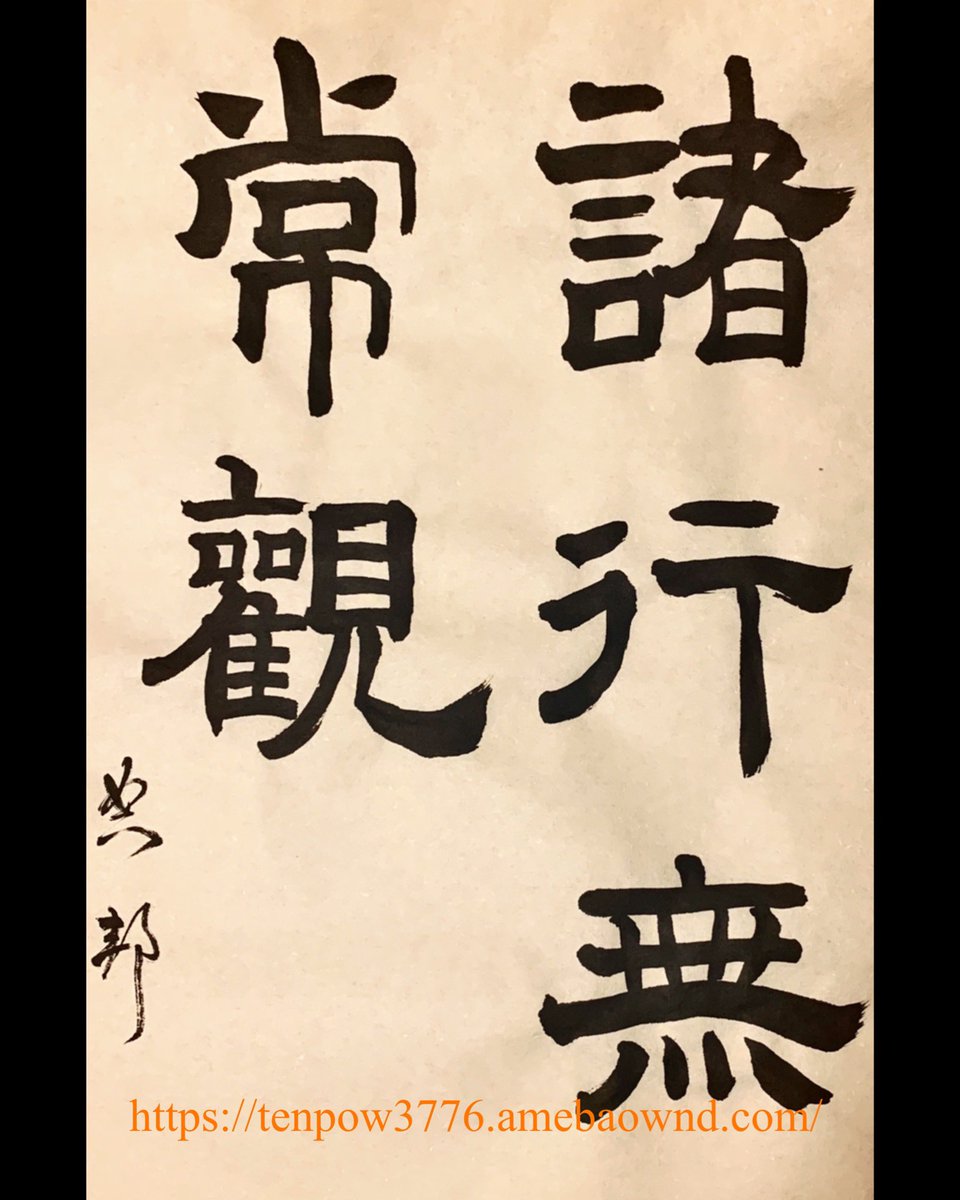 諸行無
常觀
邦
https://tenpow3776.amebaownd.com/